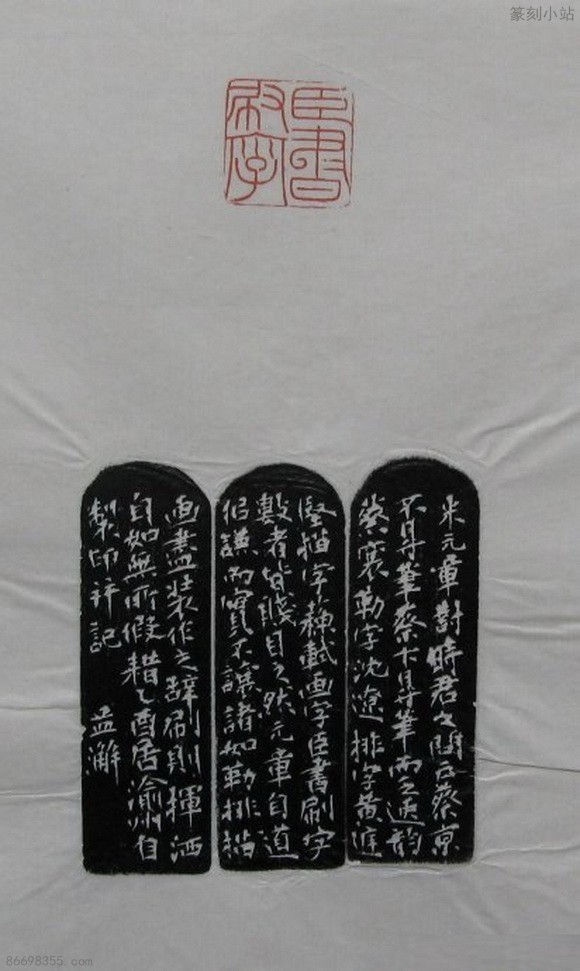 篆刻小站
臣書
刷字
米元章對時君之問曰蔡京
不得筆蔡卞得筆而乏逸韵
蔡襄勒字沈遼排字黃庭
堅描字蘇軾画字臣書刷字
數者皆賤目之然元章自道
似謙而實不讓諸如勒排描
画盡裝作之辭刷則揮洒
自如無所假耤乙酉居渝州自
製印并記 益澥
86698355.com